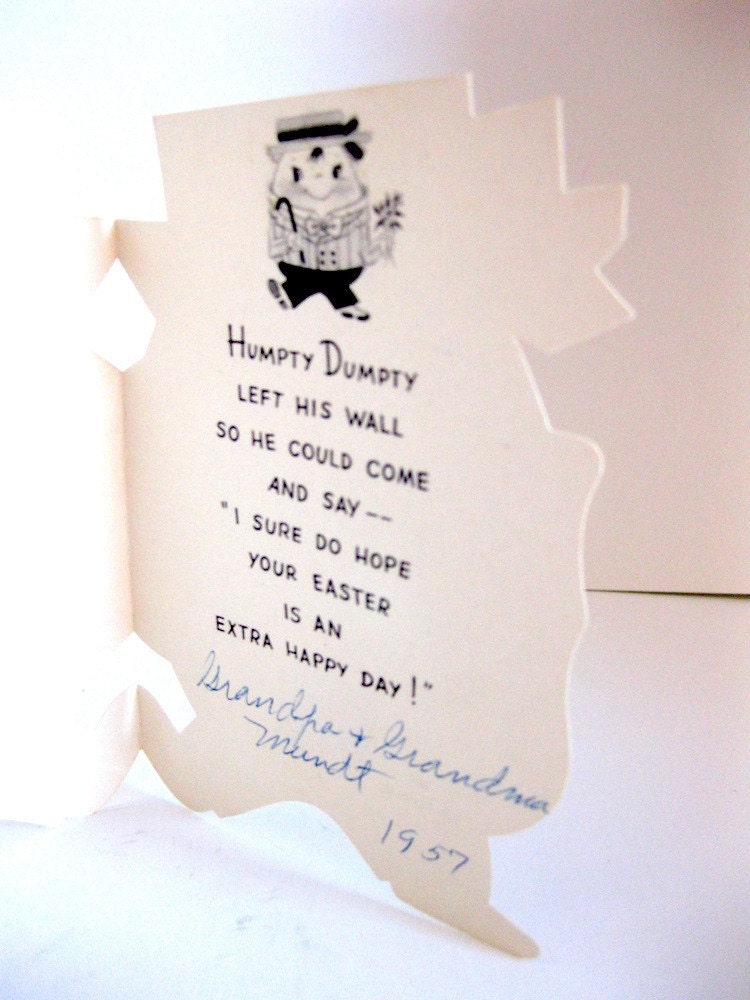 HUMPTY DUMPTY
LEFT HIS WALL
SO HE COULD COME
AND SAY--
"I SURE DO HOPE
YOUR EASTER
IS AN
EXTRA HAPPY DAY!"
Grandpa & Grandma
Mundt
1957